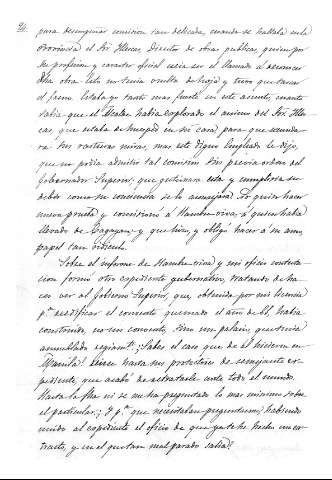 para desempeñar comision tan delicada, cuando se hallaba en la
Provincia el Sr. Director de obras publicas, quien por
su profesion y caracter oficial era el llamado a reconocer
una obra
el faena. Estaba yo tanto mas fuerte en este asunto, cuanto
sabia que el Alcalde habia explorado el animo del Sr.
que estaba de huesped en su casa, para que secunda
ra sus rastreras miras, mas este digno Empleado le dijo,
que no podia admitir tal comision sin previa orden del
Gobernador Superior, que gestionara esta y cumpliria su
deber como su conciencia se lo aconsejara. No quiso hacer
nueva prueba y comisionó a Hambre-viva, a quien habia
llevado de Cagayan, y que hizo, y obligó hacer á su amo,
papel tan ridiculo.
Sobre el informe de Hambre-viva y mi oficio contesta-
cion formó otro expediente gubernativo, tratando de ha-
cer ver al Gobierno Superior, que, obtenida por mi licencia
pª reedificar el convento quemado el año de 61, habia
construido no un convento, sino un palacio, que tenia
amueblado regiamte. ¡Sabes el caso que de él hicieron en
Manila? Reirse hasta sus protectores de semejante ex-
pediente, que acabó de retratarle ante todo el mundo.
Hasta la fha ni se me ha preguntado lo mas minimo sobre
el particular; ¿Y pª que necesitaban preguntarme, habiendo
unido al expediente el oficio de que ya te he hecho un ex-
tracto, y en el que tan mal parado salia?